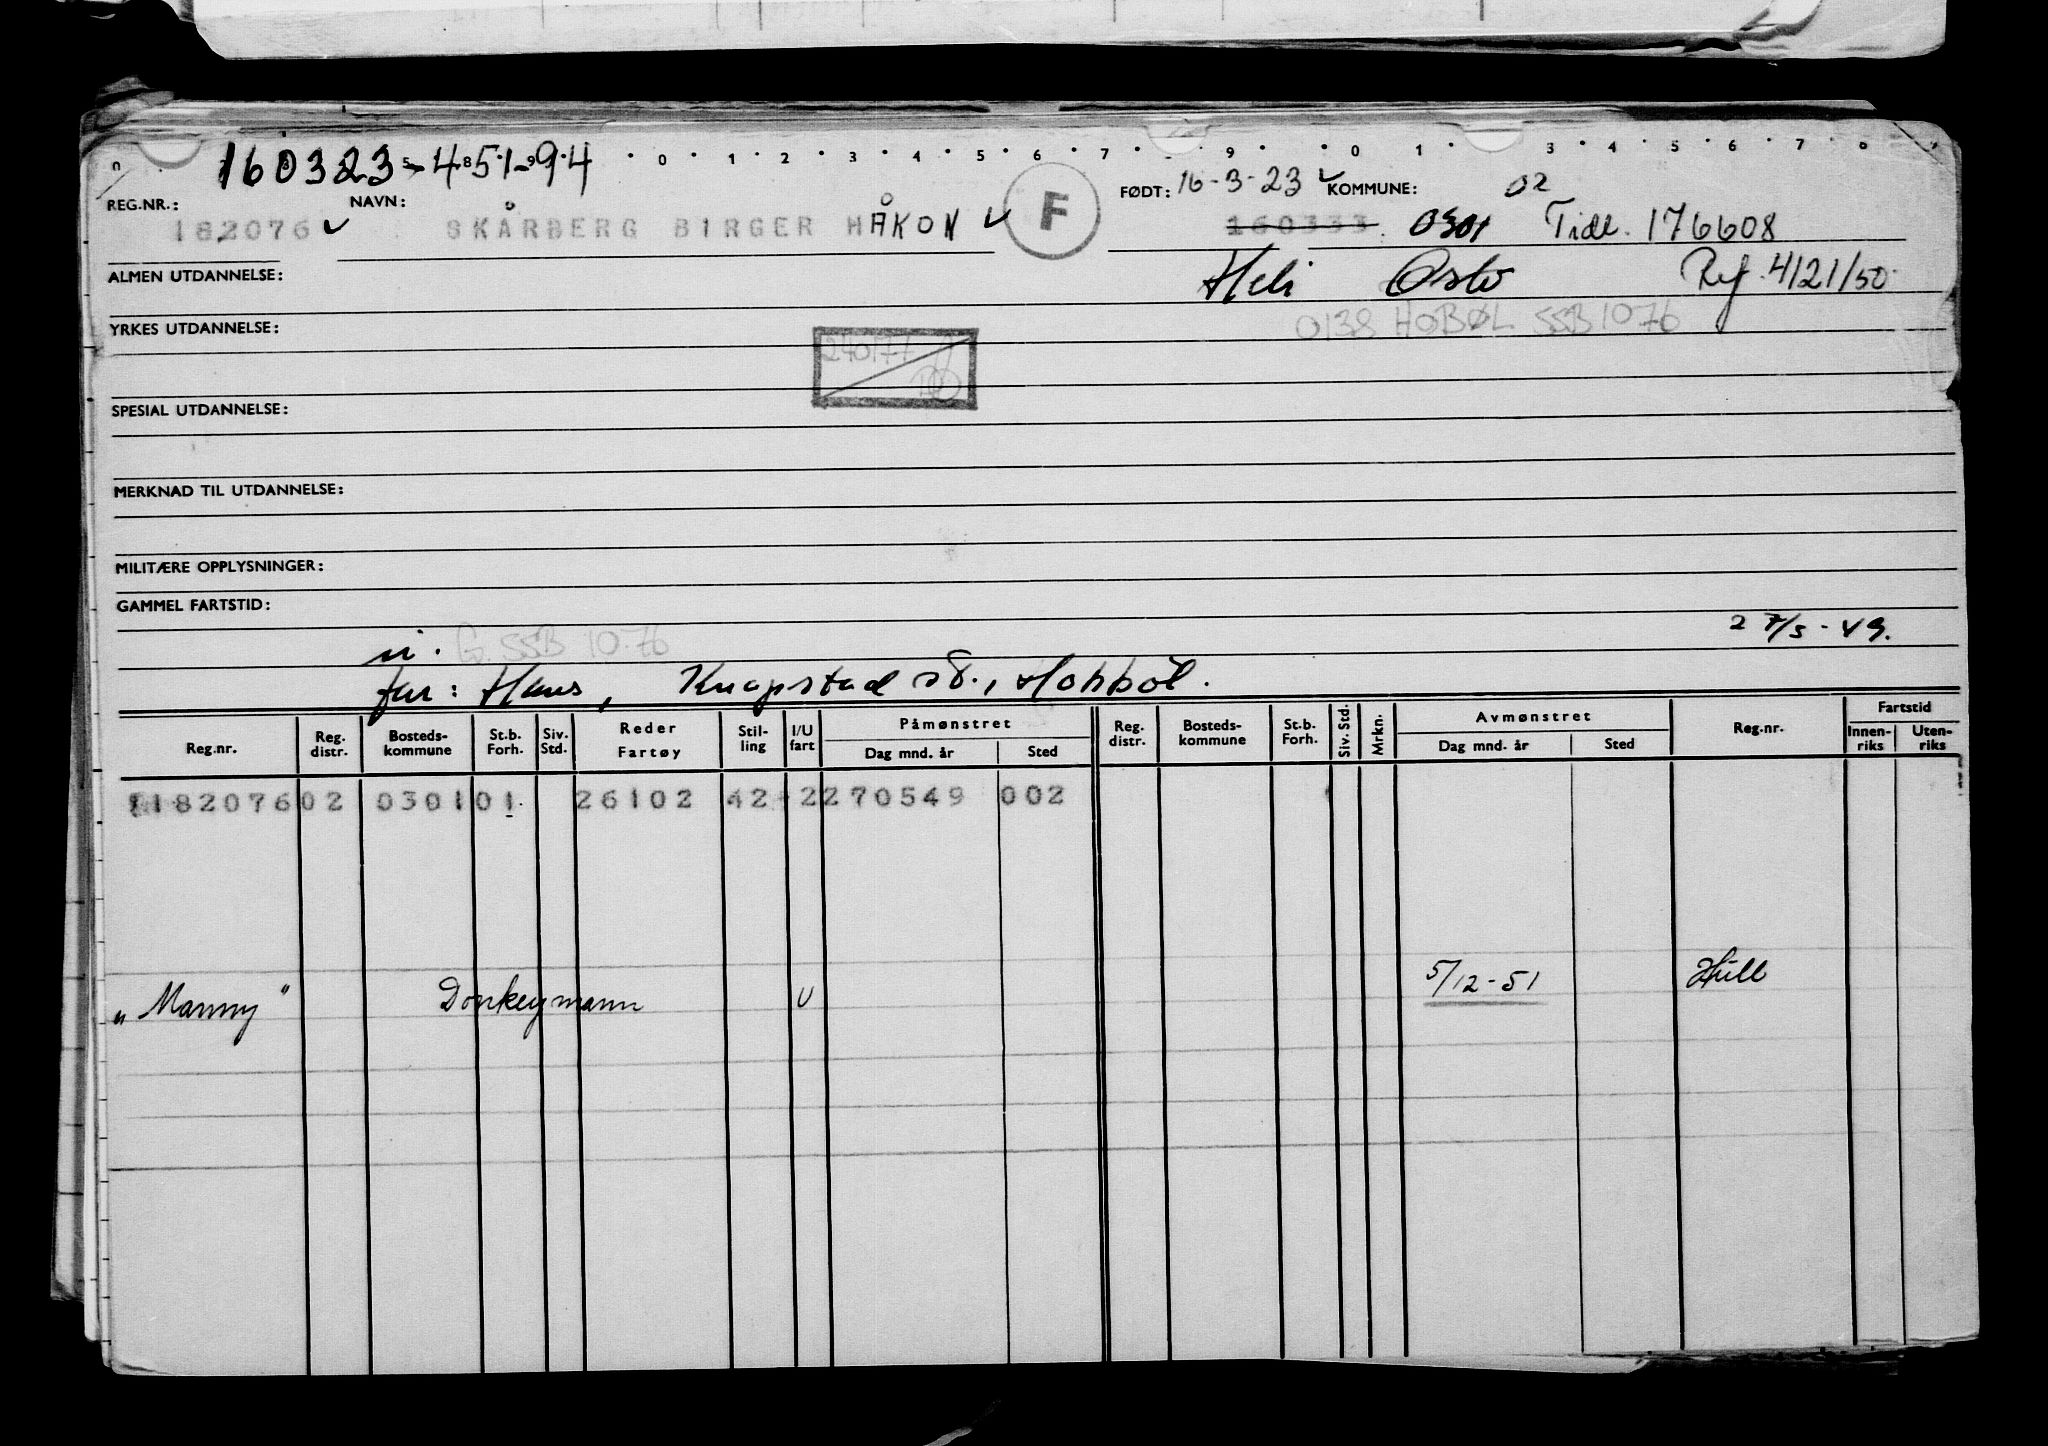 160323-451-94
0 1 2 3 4 5 6 7 9 0 1 3 4 5 6 7 8
REG.NR.: NAVN: FØDT: 16-3-23 KOMMUNE: 02
182076 SKÅRBERG BIRGER HÅKON F 160333 0301 Tidl. 176608
ALMEN UTDANNELSE: Oslo Ref. 4121/50
YRKES UTDANNELSE: 0138 HOBØL SSB 1076
240177
SPESIAL UTDANNELSE:
MERKNAD TIL UTDANNELSE:
MILITÆRE OPPLYSNINGER:
GAMMEL FARTSTID:
2 7/5 - 49.
G. SSB 10.76
far: Hans, Knapstad st., Hobbøl.
Reg.nr. Reg. distr. Bosteds- kommune St.b. Forh. Siv. Std. Reder Fartøy Stil- ling I/U fart Påmønstret Dag mnd. år Sted Reg. distr. Bosteds- kommune St.b. Forh. Siv. Std. Mrkn. Avmønstret Dag mnd. år Sted Reg.nr. Fartstid Innen- riks Uten- riks
18207602 030101 26102 42 2270549 002
"Manny" Donkeymann U 5/12-51 Hull